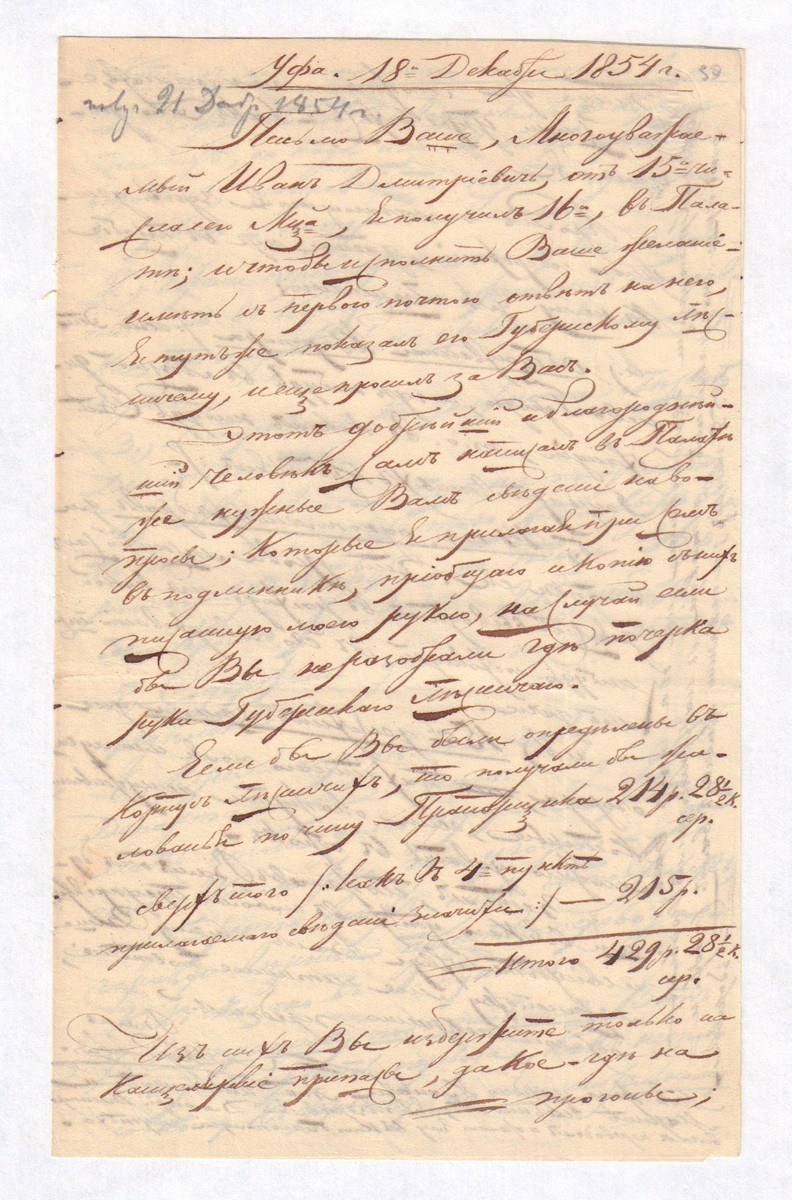 Уфа. 18го Декабря 1854 г.
50
полу 21 Декбр 1854 г.
Письмо Ваше, Многоуважае-
мый Иванъ Дмитріевичъ, отъ 15го чи-
сла сего Мца, Я получилъ 16го, въ Пала-
тѣ; и чтобы исполнить Ваше желаніе-
имѣть съ первою почтою отвѣтъ на него,
Я тутъ же показалъ его Губернскому Лѣс-
ничему, и еще просилъ за Васъ.
Этотъ добрѣйшій и благороднѣй-
шій человѣкъ самъ написалъ въ Палатѣ
же нужныя Вамъ свѣденія на во-
просы; которые Я прилагаю при семъ
въ подлинникѣ, пріобщаю и копію съ нихъ
писанную моею рукою, на случай если
бы Вы не разобрали гдѣ почерка
руки Губернскаго Лѣсничаго.
Если бы Вы были опредѣлены въ
Корпусъ Лѣсничихъ, то получали бы жа-
лованья по чину Прапорщика 214 р. 28 1/2 к.
ср.
сверхъ того /: какъ въ 4мъ пунктѣ
прилагаемаго свѣденія значится :/ — 215 р.
Итого 429 р. 28 1/2 к.
ср.
Изъ нихъ Вы издержите только на
Канцелярскіе припасы, да кое-гдѣ на
прогоны;